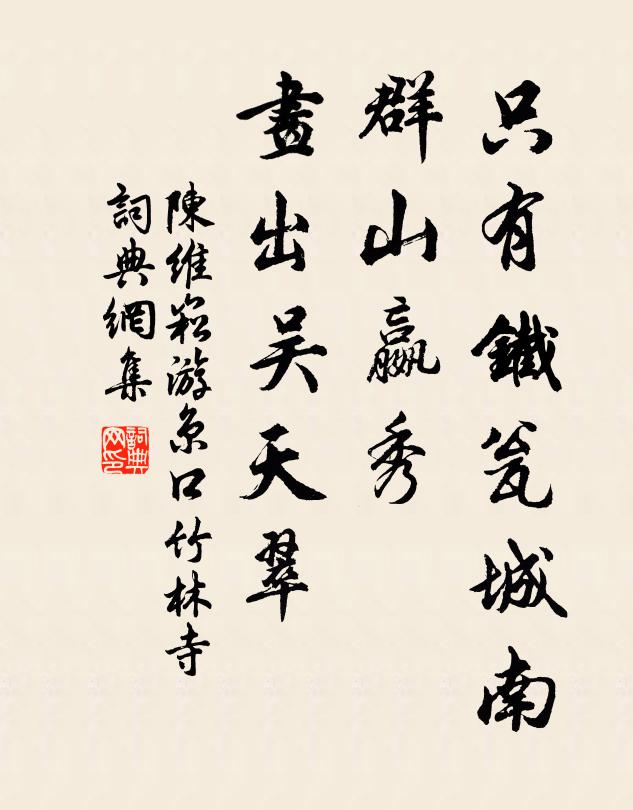 只有鐵瓮城南
群山嬴秀
畫出吴天翠
陳維崧游京口竹林寺
詞典網集
詞典网印